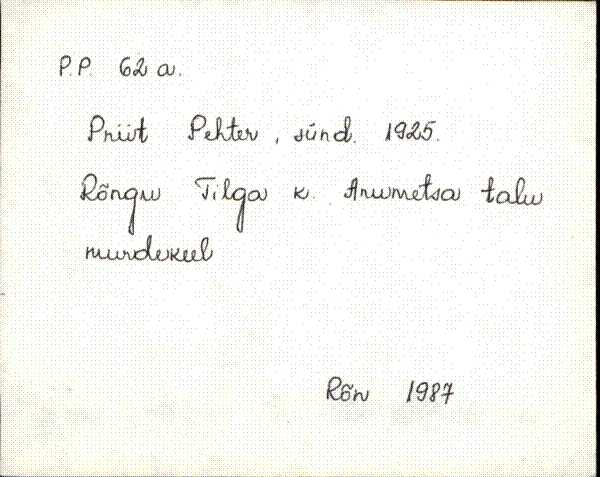 P.P. 62 a.
Priit Pehter, sünd. 1925.
Rõngu Tilga k. Arumetsa talu
murdekeel
Rõn 1987